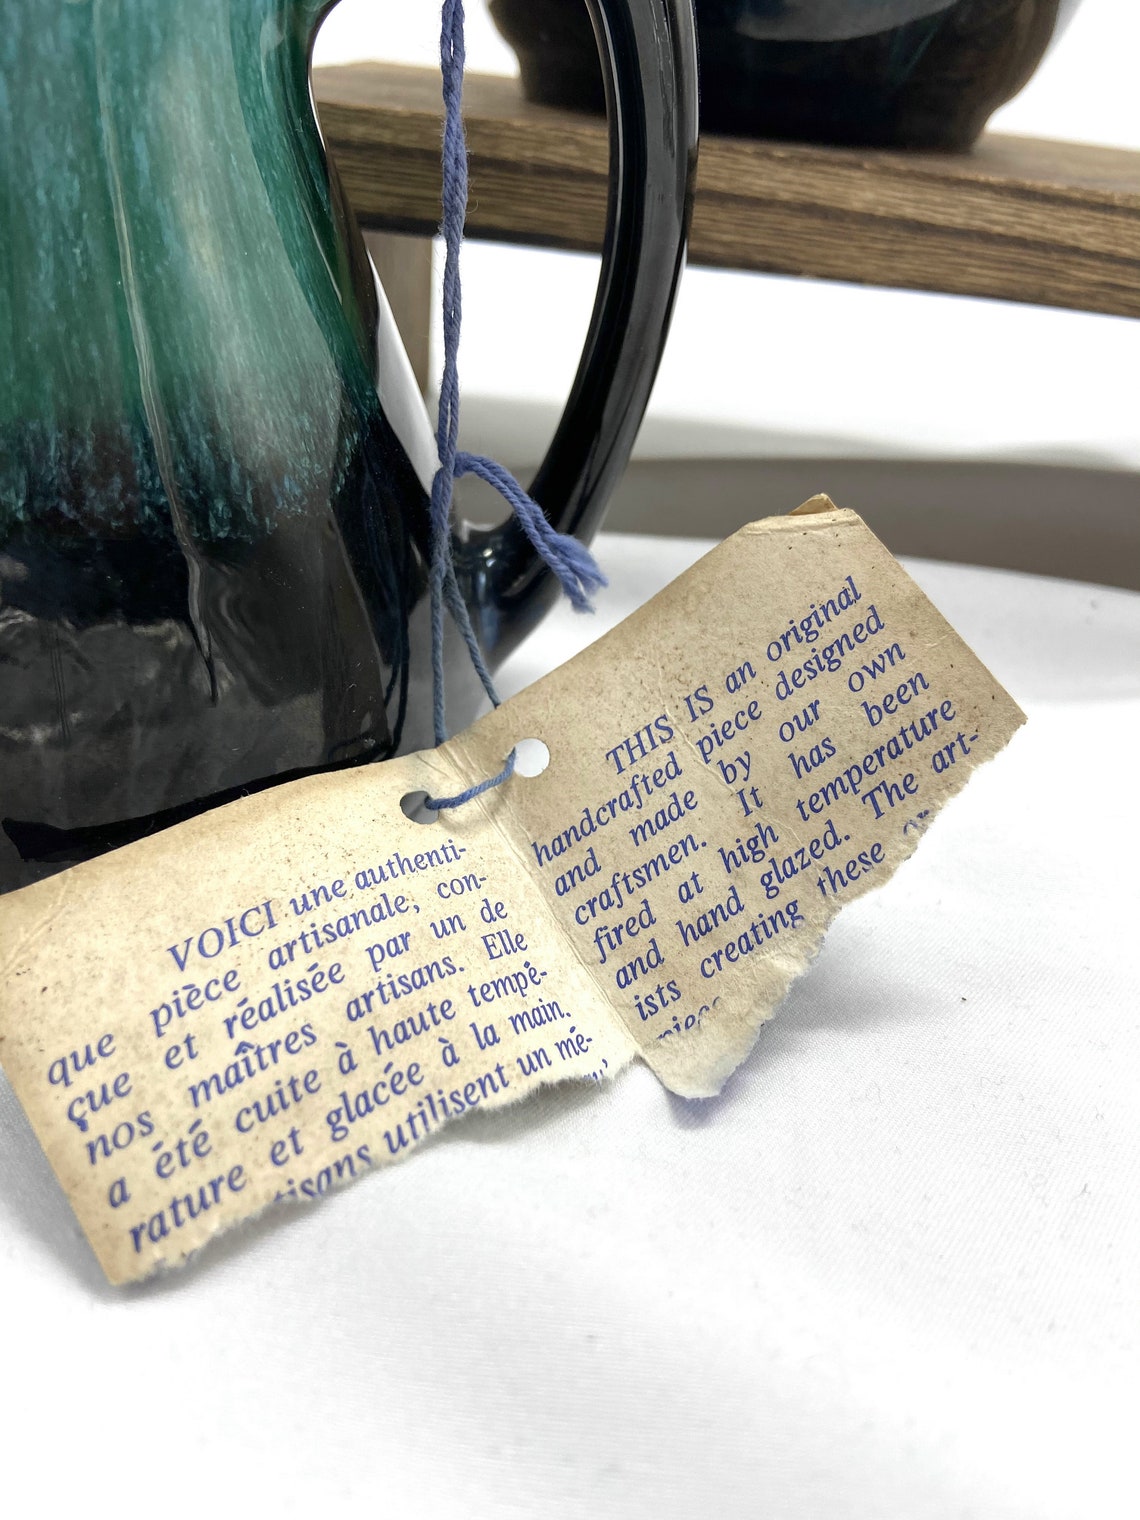 VOICI une authenti-
que pièce artisanale, con-
çue et réalisée par un de
nos maîtres artisans. Elle
a été cuite à haute tempé-
rature et glacée à la main.
utilisent un mé-
THIS IS an original
handcrafted piece designed
and made by our own
craftsmen. It has been
fired at high temperature
and hand glazed. The art-
ists creating these